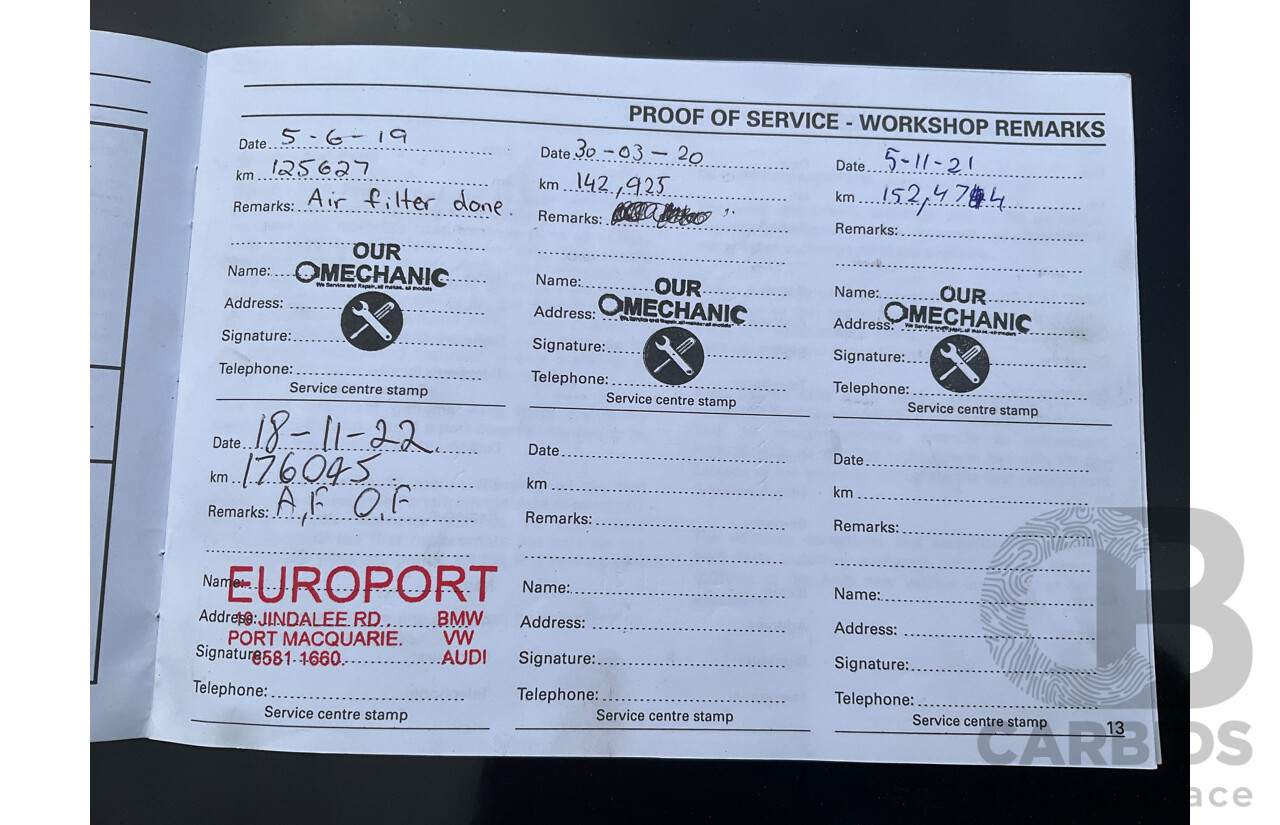 PROOF OF SERVICE - WORKSHOP REMARKS
Date 5-6-19
km 125627
Remarks: Air filter done.
Name:
OUR
MECHANIC
We Service and Repair, all makes, all models
Address:
Signature:
Telephone:
Service centre stamp
Date 30-03-20
km 142,925
Remarks:
Name:
OUR
MECHANIC
We Service and Repair, all makes, all models
Address:
Signature:
Telephone:
Service centre stamp
Date 5-11-21
km 152,474
Remarks:
Name:
OUR
MECHANIC
We Service and Repair, all makes, all models
Address:
Signature:
Telephone:
Service centre stamp
Date 18-11-22.
km 176045
Remarks: A,F O,F
Name:
EUROPORT
Address: JINDALEE RD. BMW
PORT MACQUARIE. VW
Signature: 6581 1660. AUDI
Telephone:
Service centre stamp
Date
km
Remarks:
Name:
Address:
Signature:
Telephone:
Service centre stamp
Date
km
Remarks:
Name:
Address:
Signature:
Telephone:
Service centre stamp
13
CARBIDS
ace